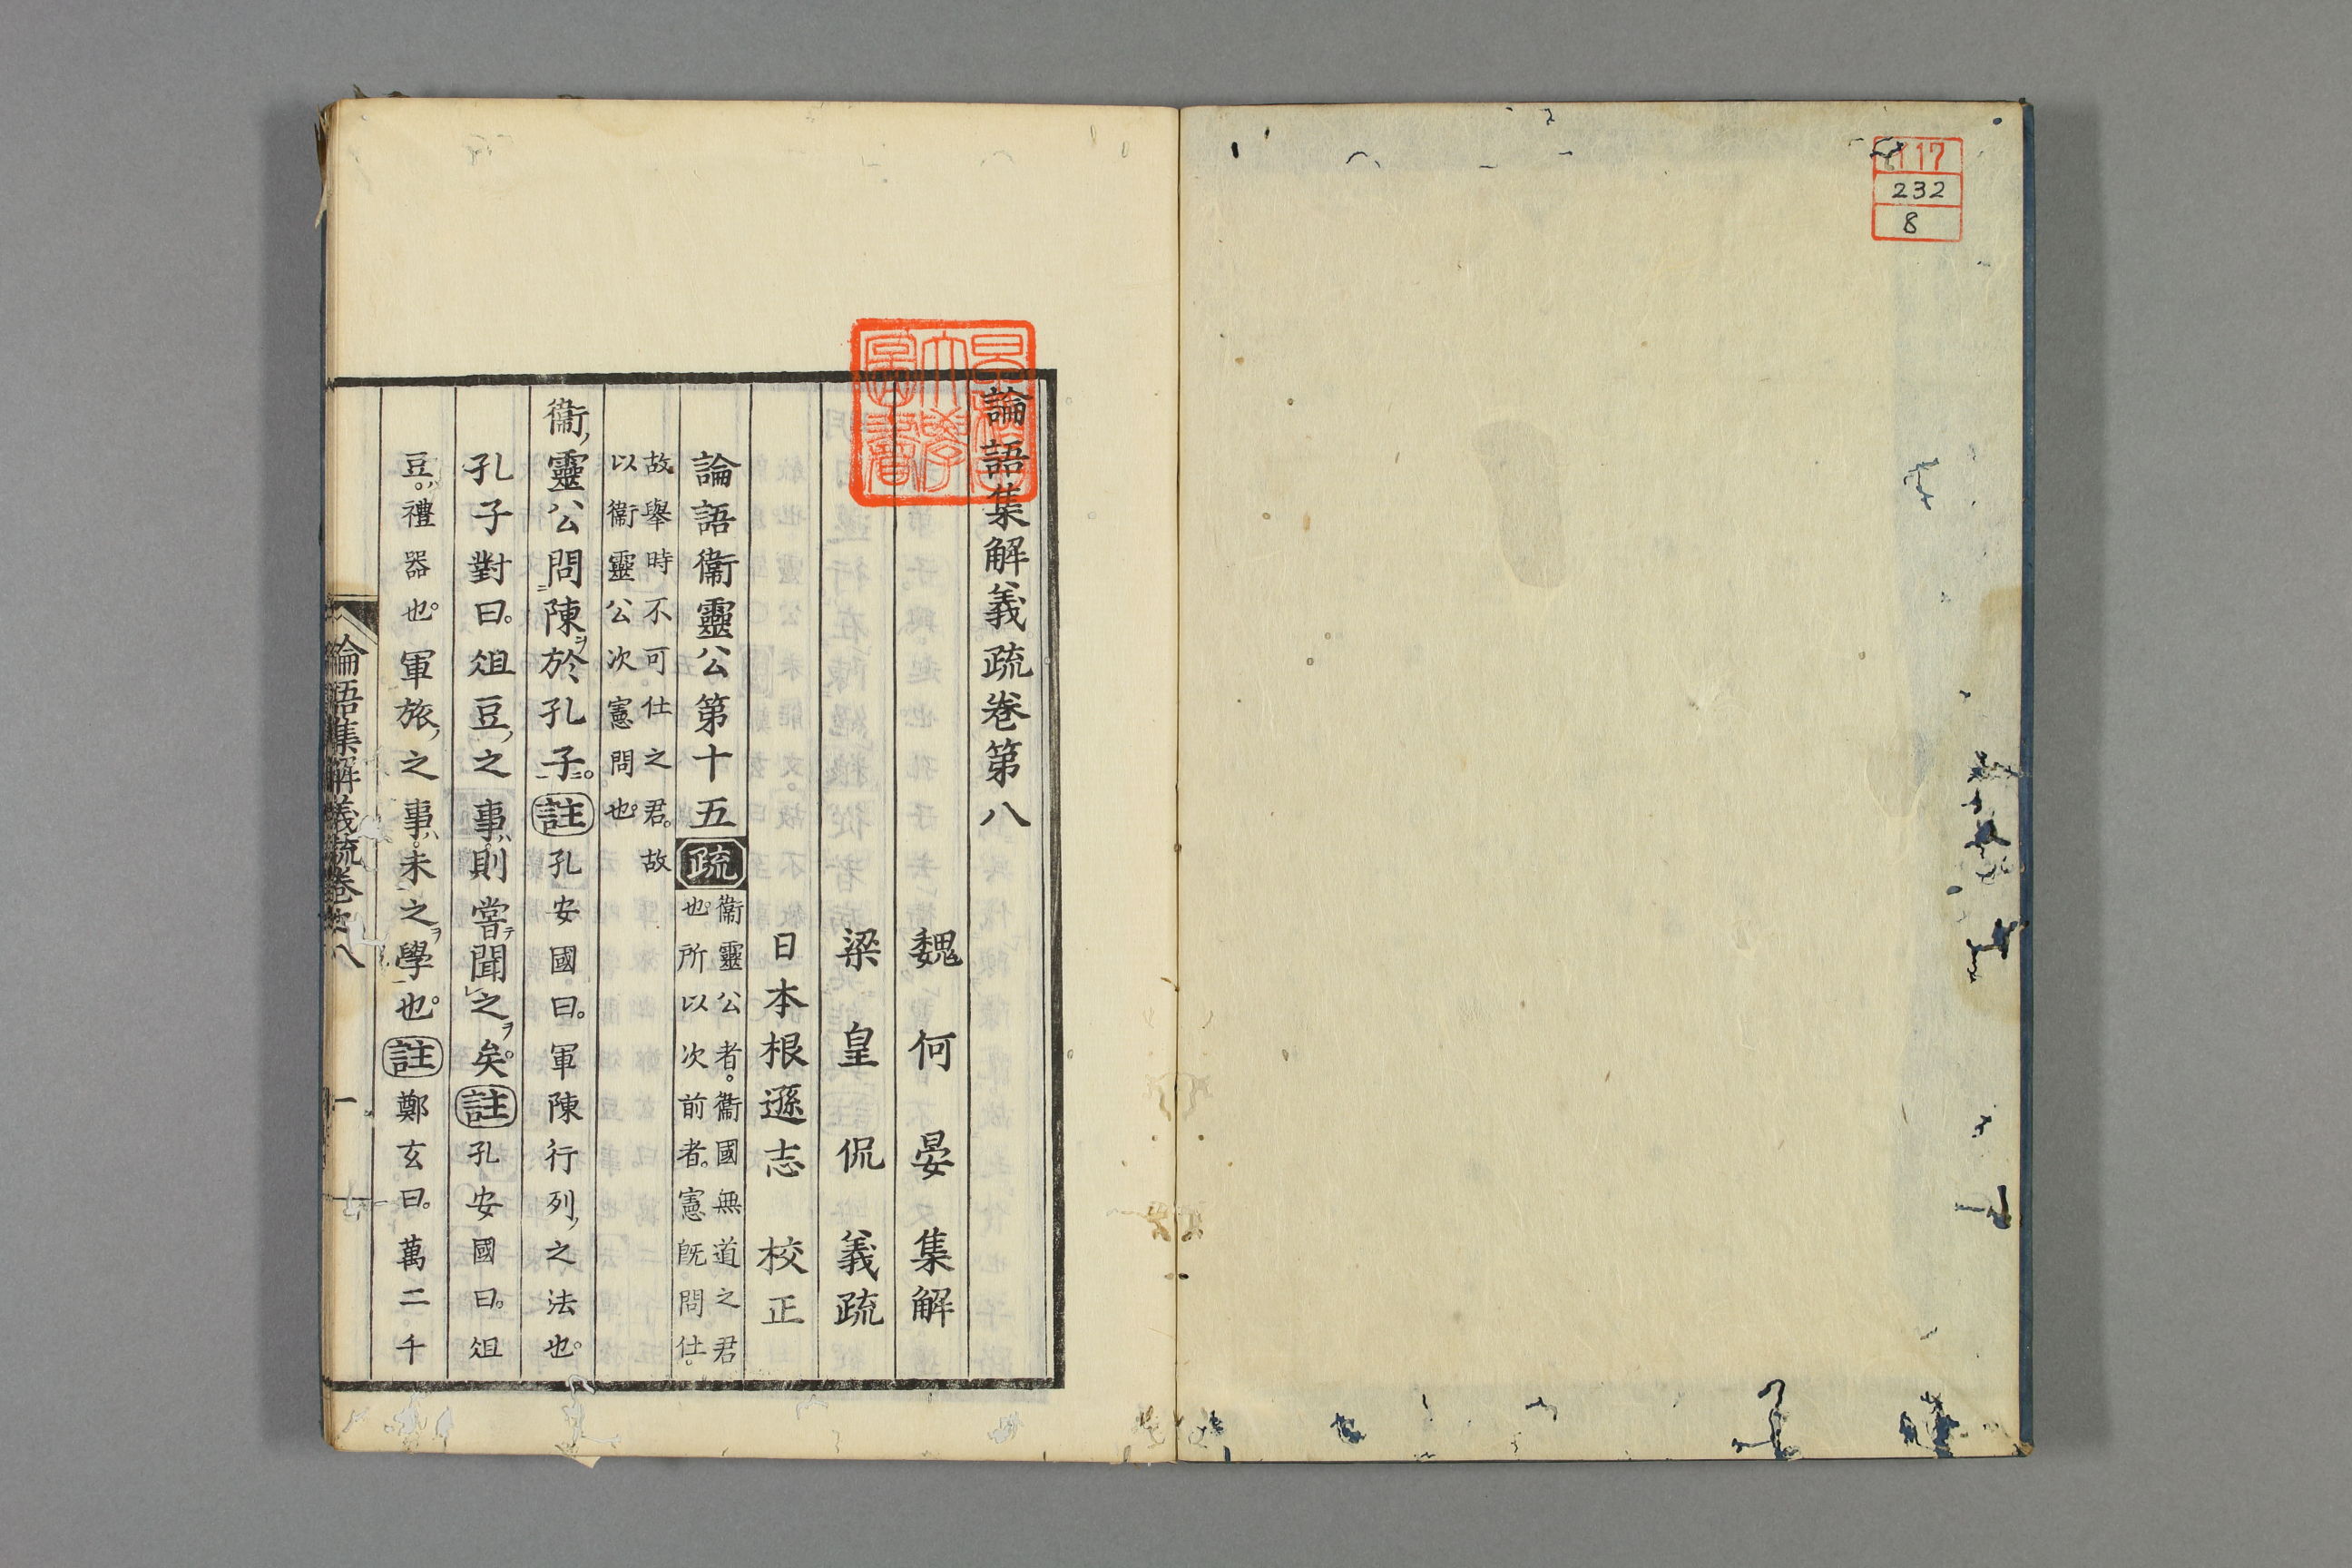 117
232
8
論語集解義疏卷第八
魏何晏集解
梁皇侃義疏
日本根遜志校正
論語衞靈公第十五疏衞靈公者。衞國無道之君
也。所以次前者。憲既問仕。
故舉時不可仕之君。故
以衞靈公次憲問也。
衞靈公問陳於孔子。註孔安國曰。軍陳行列之法也。
孔子對曰。俎豆之事則嘗聞之矣。註孔安國曰。俎
豆。禮器也。軍旅之事。未之學也。註鄭玄曰。萬二千
論語集解義疏卷第八
一